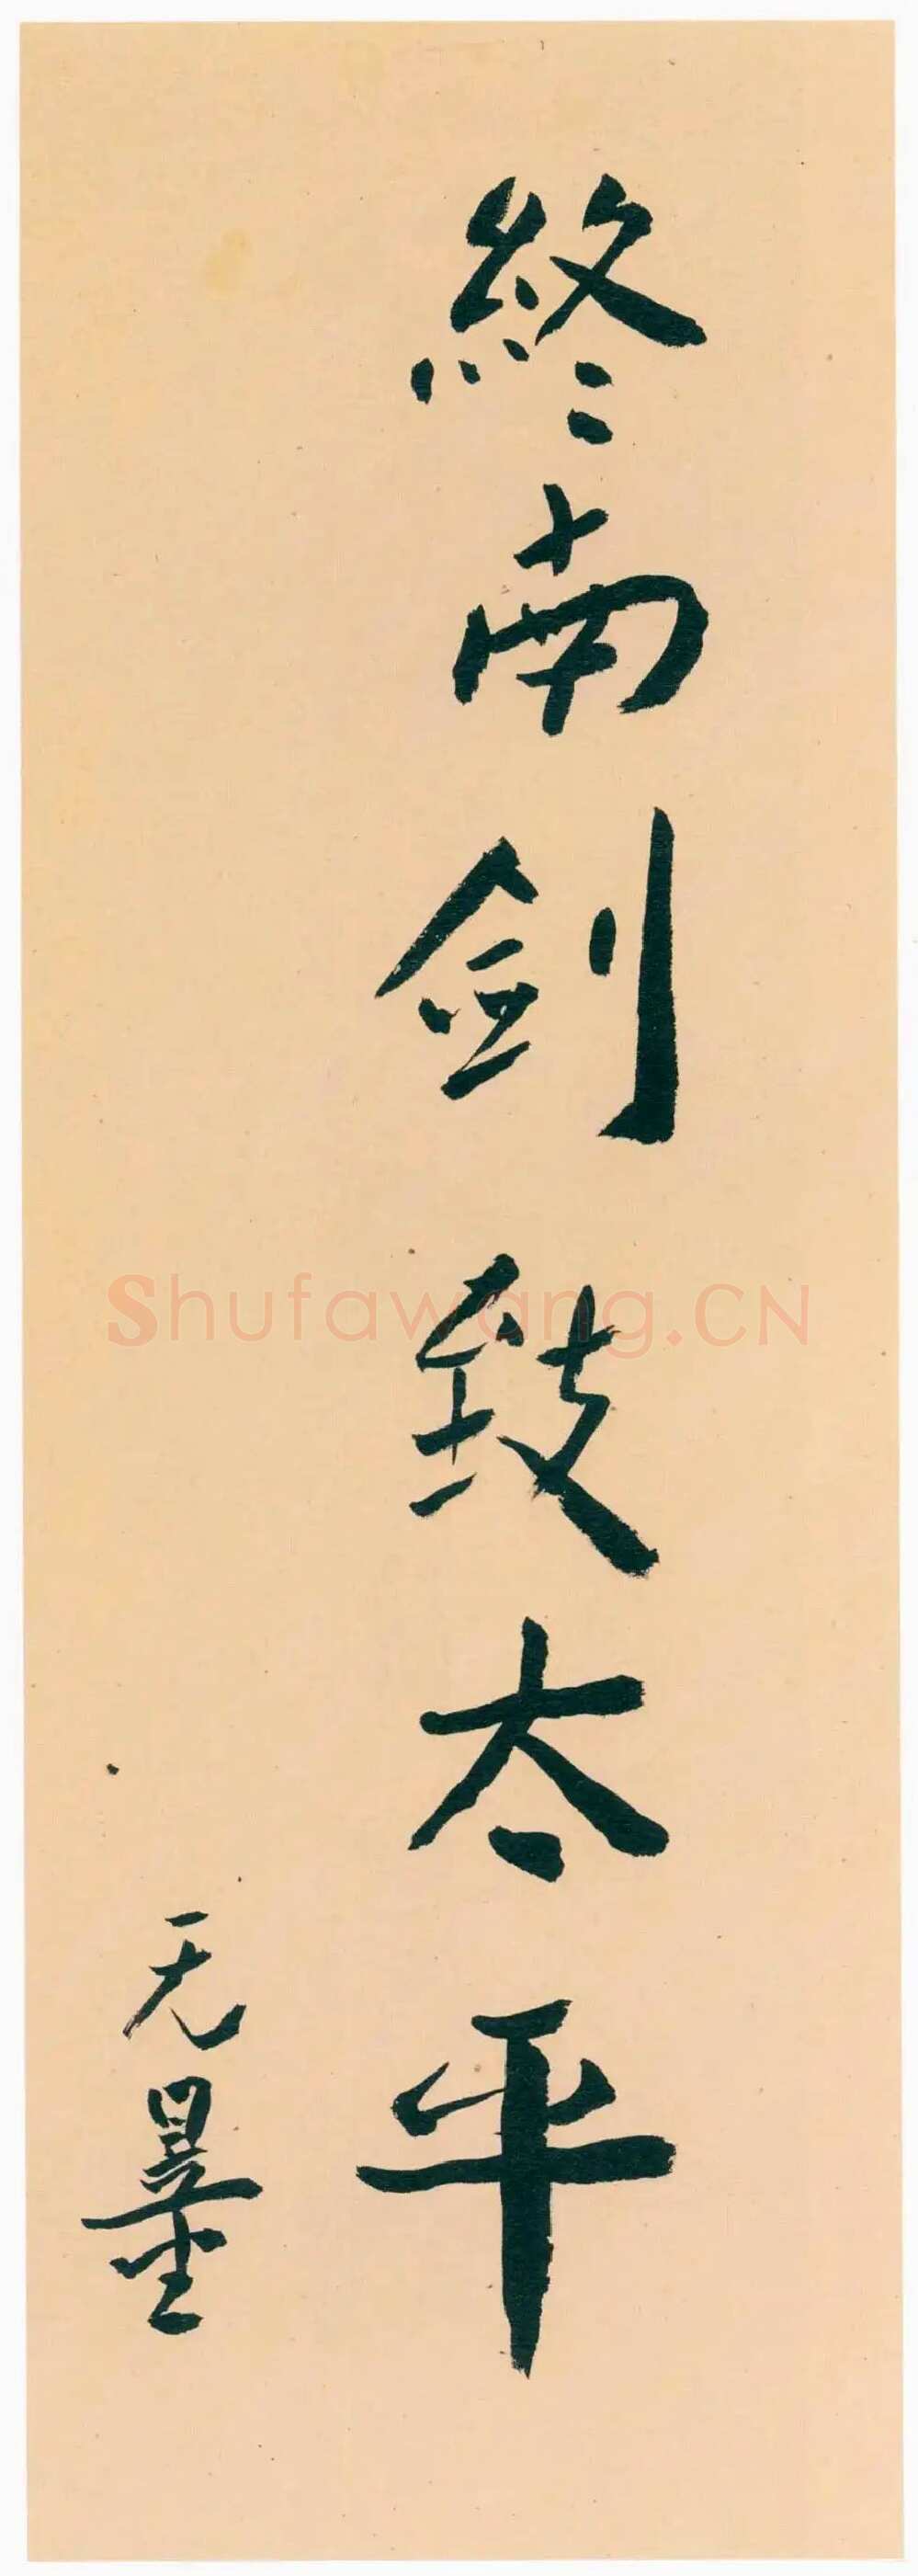 終南劍致太平
无墨
Shufawang.CN